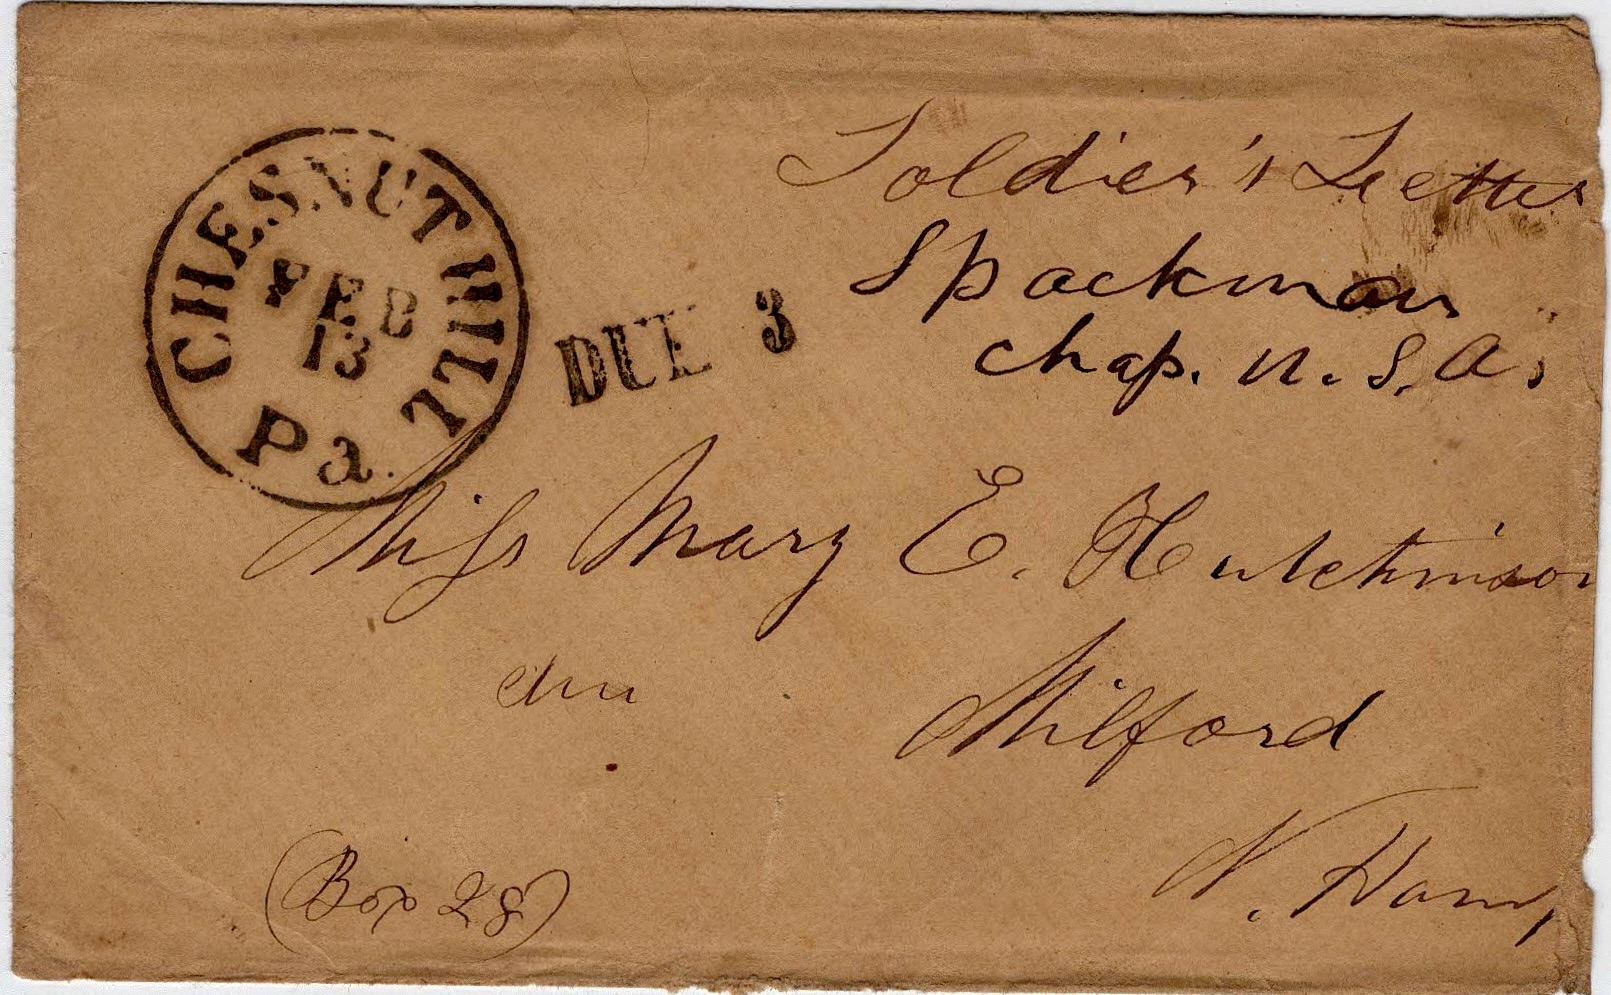 Soldier's Letter
Spackman
Chap. U.S.A.
CHESNUT HILL
FEB
13
Pa.
DUE 3
Miss Mary E. Hutchinson
Milford
N. Hamp
(Box 28)